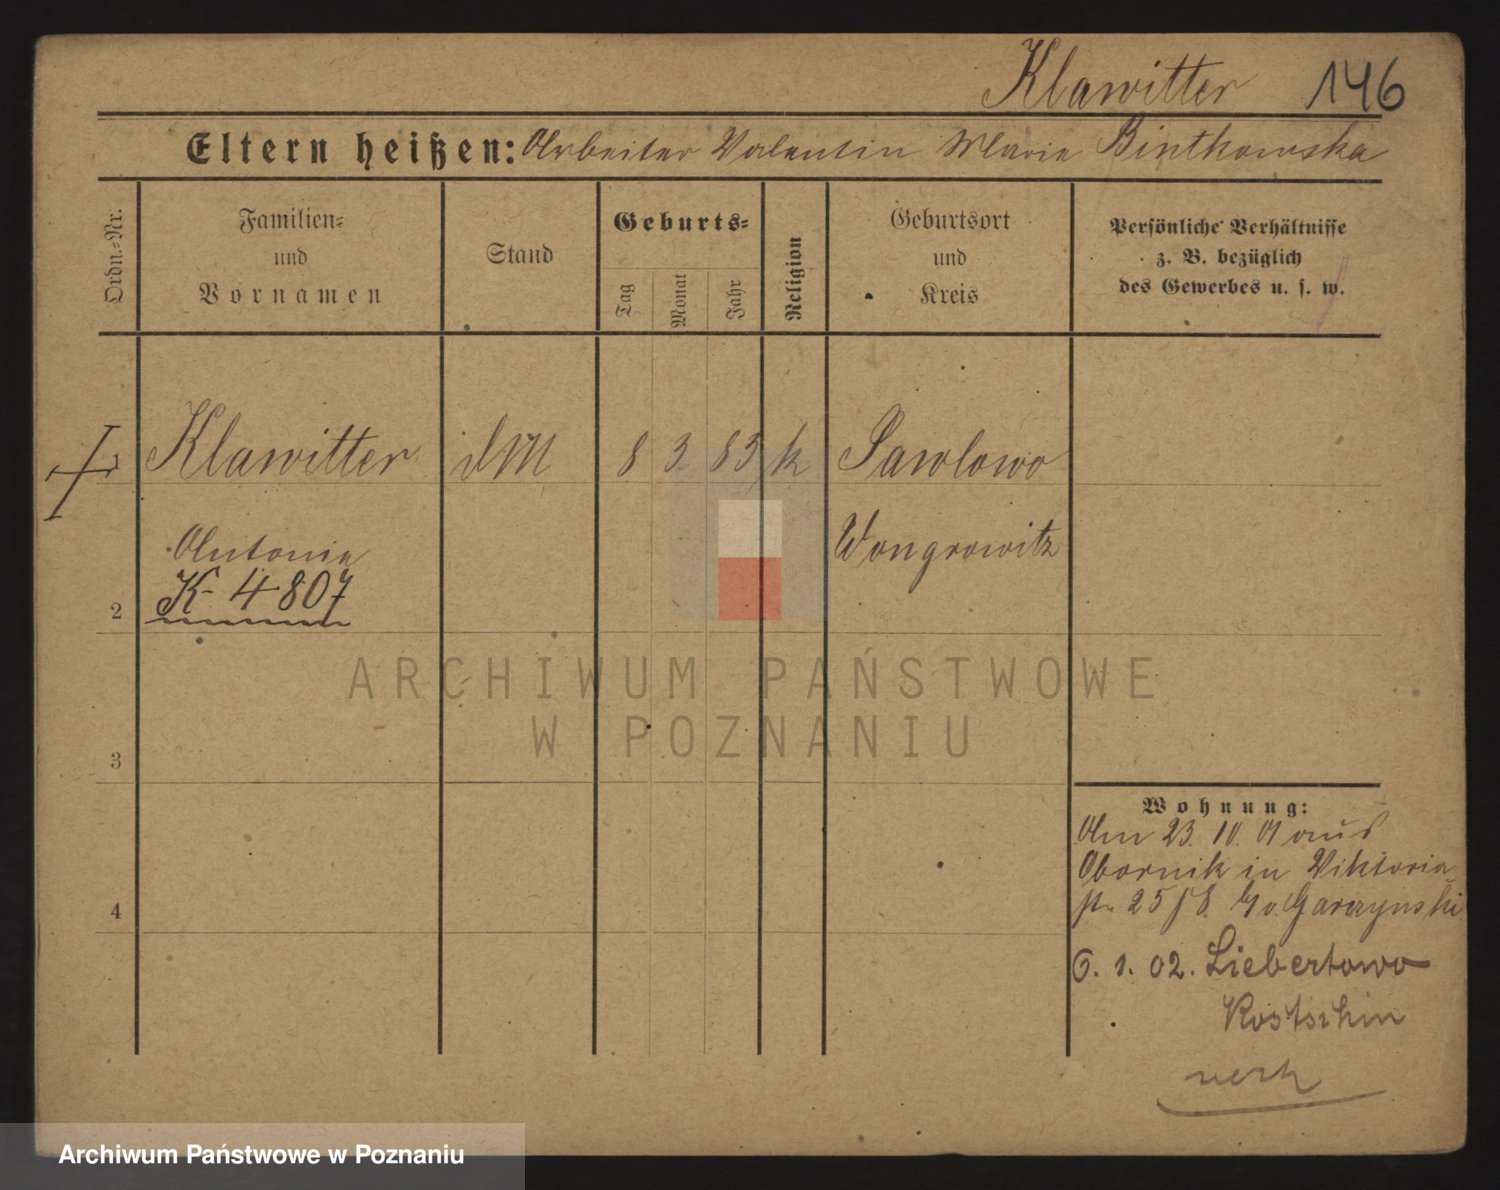 Klawitter 146
Eltern heißen: Arbeiter Valentin Marie Bintkowska
Ordn.-Nr.
Familien-
und
Vornamen
Stand
Geburts-
Tag
Monat
Jahr
Religion
Geburtsort
und
Kreis
Persönliche Verhältnisse
z. B. bezüglich
des Gewerbes u. s. w.
1 Klawitter dM 8 3 83 k Pawlowo
Antonie Wongrowitz
K- 4807
2
ARCHIWUM PAŃSTWOWE
W POZNANIU
3
Wohnung:
Am 23. 10. 01 aus
Obornik in Viktoria
st. 25 b. v. Garczynski
4
6. 1. 02. Liebertowo
Kostschin
verz
Archiwum Państwowe w Poznaniu